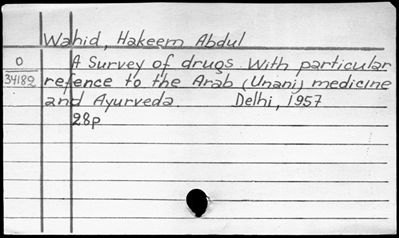 Wahid, Hakeem Abdul
O A Survey of drugs. With particular
34182 refence to the Arab (Unani) medicine
and Ayurveda. Delhi, 1957
28p